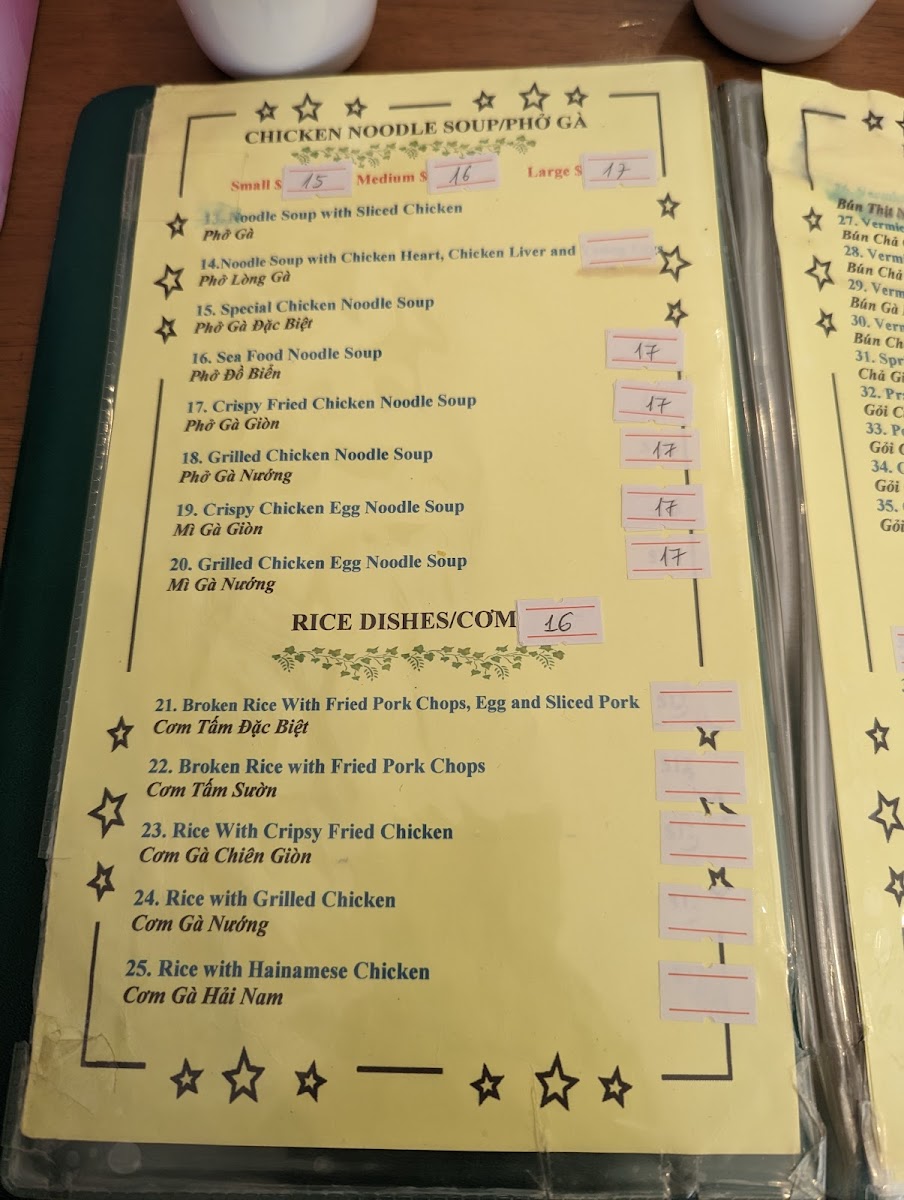 CHICKEN NOODLE SOUP/PHỞ GÀ
Small $ 15 Medium $ 16 Large $ 17
13. Noodle Soup with Sliced Chicken
Phở Gà
14.Noodle Soup with Chicken Heart, Chicken Liver and
Phở Lòng Gà
15. Special Chicken Noodle Soup
Phở Gà Đặc Biệt
16. Sea Food Noodle Soup 17
Phở Đồ Biển
17. Crispy Fried Chicken Noodle Soup 17
Phở Gà Giòn
18. Grilled Chicken Noodle Soup 17
Phở Gà Nướng
19. Crispy Chicken Egg Noodle Soup 17
Mì Gà Giòn
20. Grilled Chicken Egg Noodle Soup 17
Mì Gà Nướng
RICE DISHES/CƠM 16
21. Broken Rice With Fried Pork Chops, Egg and Sliced Pork
Cơm Tấm Đặc Biệt
22. Broken Rice with Fried Pork Chops
Cơm Tấm Sườn
23. Rice With Cripsy Fried Chicken
Cơm Gà Chiên Giòn
24. Rice with Grilled Chicken
Cơm Gà Nướng
25. Rice with Hainamese Chicken
Cơm Gà Hải Nam
Bún Thịt
27.
Bún Chả
28.
Bún Chả
29.
Bún Gà
30.
Bún
31.
Chả
32.
Gỏi
33.
Gỏi
34.
Gỏi
35.
Gỏi